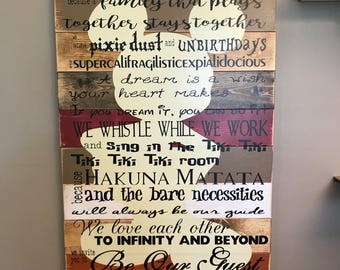 because a family that plays
together stays together
we pixie dust and UNBIRTHDAYS
are SUPERCALIFRAGILISTICEXPIALIDOCIOUS
A dream is a wish
your heart makes
If you dream it, you can do it!
WE WHISTLE WHILE WE WORK
and Sing in The Tiki
Tiki Tiki Tiki room
because HAKUNA MATATA
and the bare necessities
will always be our guide
We love each other
TO INFINITY AND BEYOND
we invite you to Be Our Guest